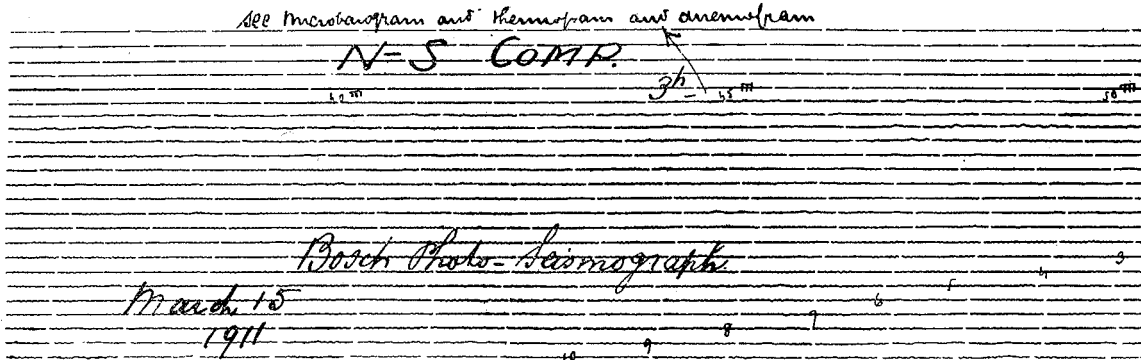 see Microbarogram and thermogram and anemogram
N-S COMP.
42 m 3h 45 m 50 m
Bosch Photo-Seismograph
3
4
5
March 15
6
7
1911
8
9
10